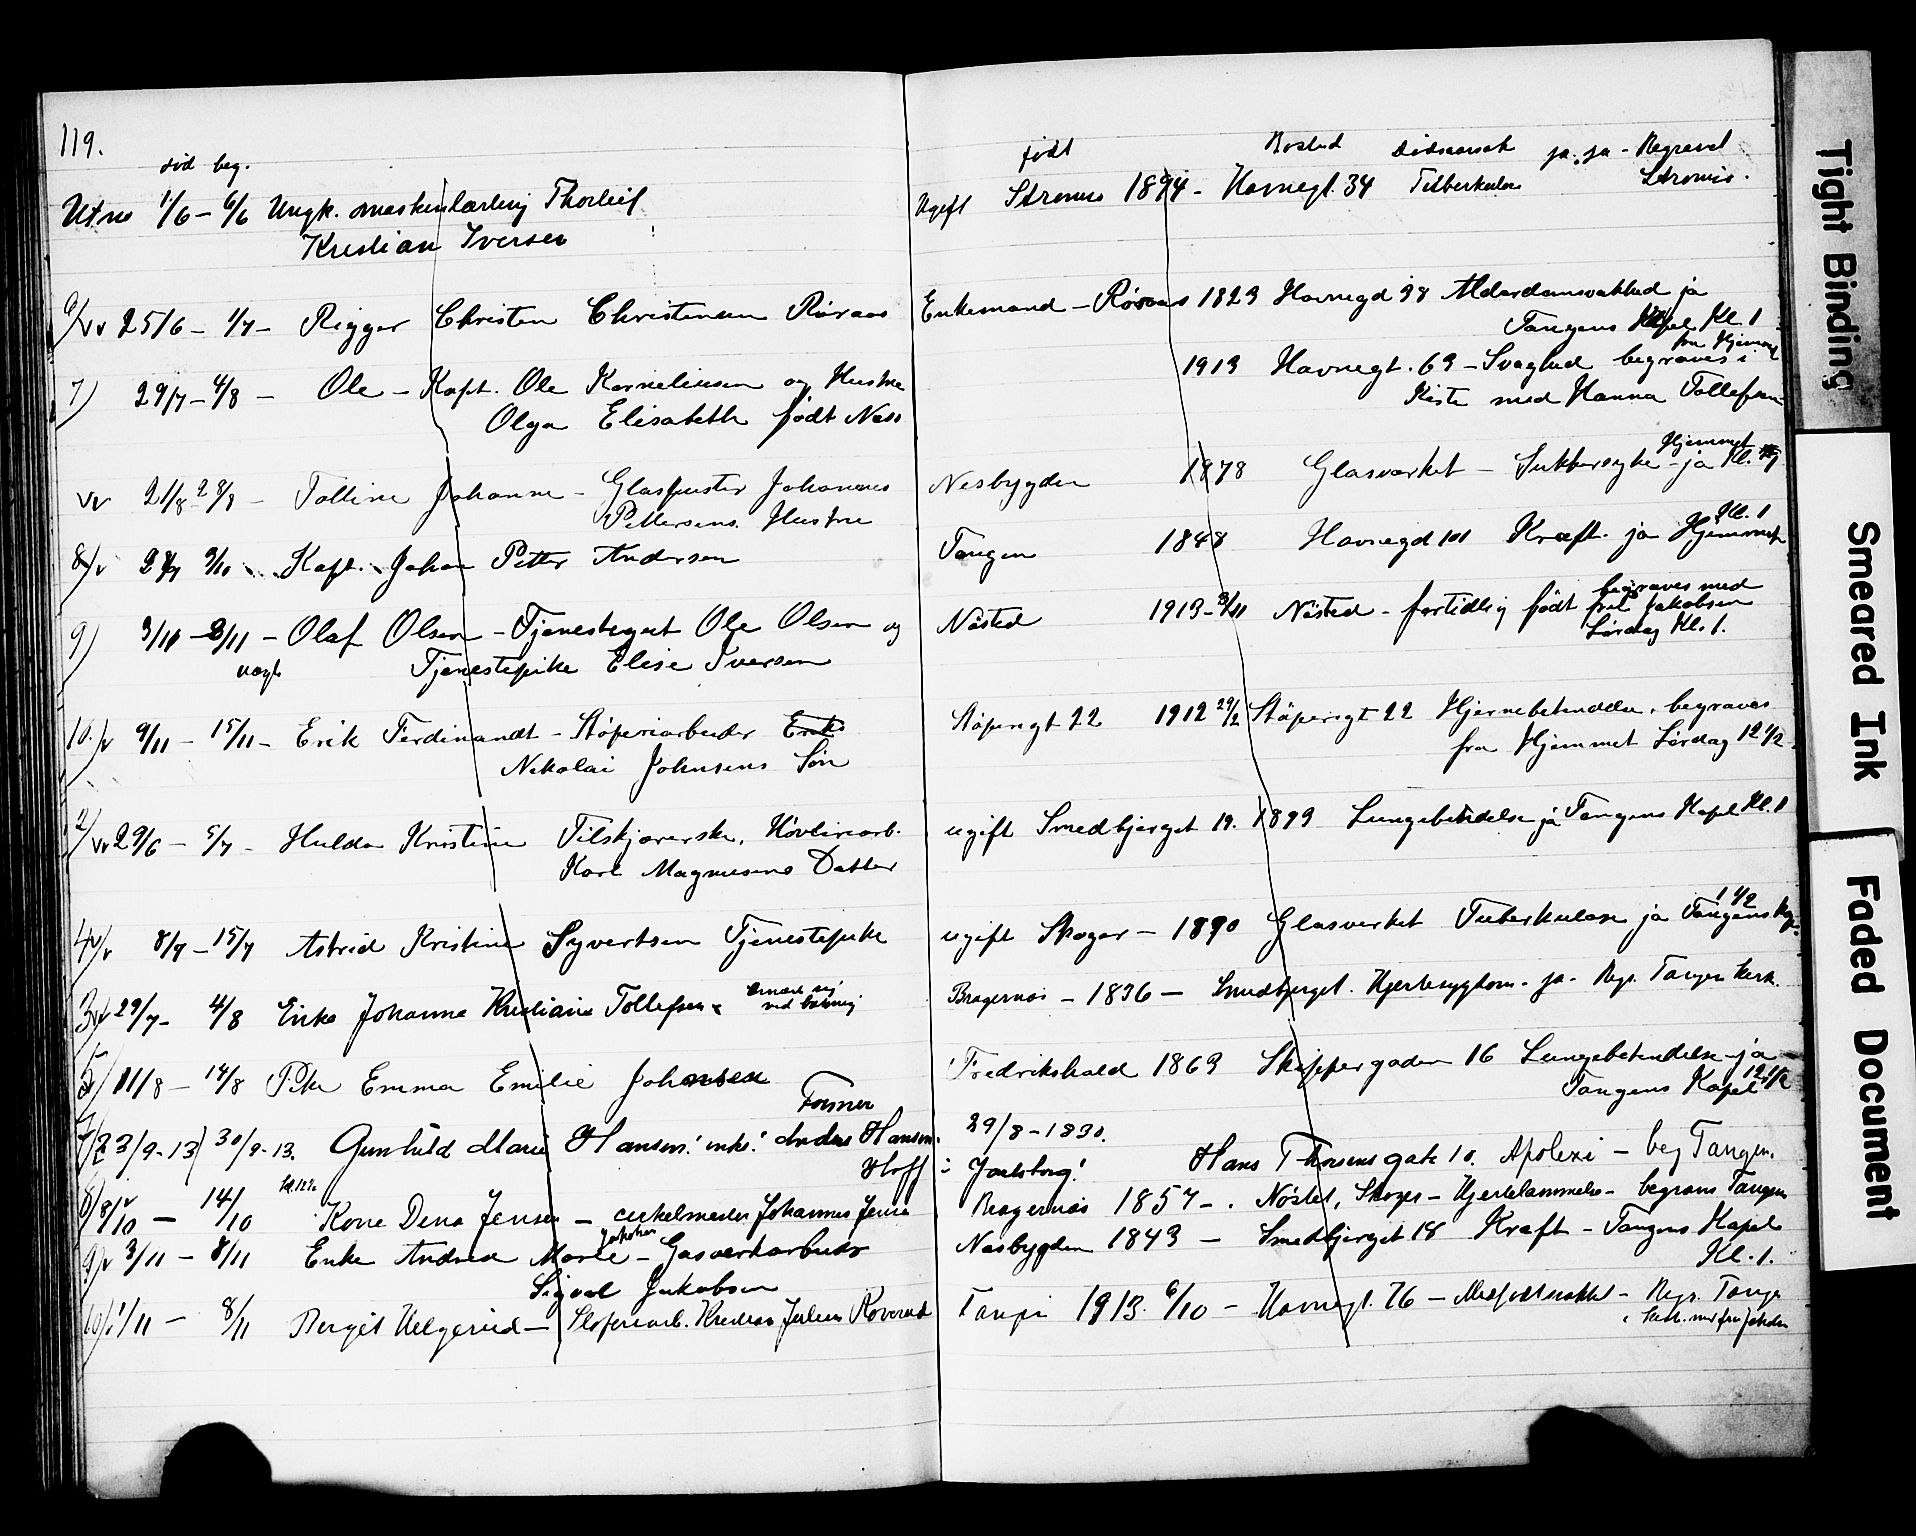 119.
død beg. født Bosted Dødsaarsak ja. ja - Begravet
1/6 - 6/6 Ungk. maskinlærling Thorleif Ugift Strømsø 1894 - Havnegt. 34 Tuberkulose Strømsø.
Kristian Iversen
6/ 25/6 - 1/7 - Rigger Christen Christensen Røraas Enkemand - Røraas 1823 Havnegd 98 Alderdomsvakhed ja
Tangens Kapel Kl. 1
7) 29/7 - 4/8 - Ole - Kapt. Ole Korneliusen og Hustru 1913 Havnegt. 69 - Svaghed begraves i
fra Hjemmet
Olga Elisabeth født Næss Kiste med Hanna Tollefsen
21/8 - 28/8 - Tolline Johanne - Glaspuster Johannes Nesbygden 1878 Glasværket - Sukkersyke - ja Kl. 1
Hjemmet
Pettersens Hustru
8/ 3/10 Kapt. Johan Petter Andersen Tangen 1848 Havnegd 101 Kræft. ja Hjemmet
Kl. 1
9) 3/11 - 8/11 - Olaf Olsen - Tjenestegut Ole Olsen og Nøsted 1913 - 3/11 Nøsted - fortidlig født begraves med
frk Jakobsen
vogt Tjenestepike Elise Iversen Lørdag Kl. 1.
10. 9/11 - 15/11 - Erik Ferdinandt - Støperiarbeider Erik Støperigt 22 1912 29/2 Støperigt 22 Hjernebetendelse. begraves
Nikolai Johnsens Søn fra Hjemmet Lørdag 12 1/2
2/ 29/6 - 5/7 - Hulda Kristine Tilskjærerske, Høvleriarb. ugift Smedbjerget 19. 1893 Lungebetendelse ja Tangens Kapel Kl. 1
Karl Magnusens Datter
4/ 8/7 - 15/7 Astrid Kristine Syvertsen Tjenestepike ugift Skoger - 1890 Glasverket Tuberkulose ja Tangens Kap.
1 1/2
3/ 29/7 - 4/8 Enke Johanne Kristiane Tollefsen Bragernæs - 1836 - Smedbjerget. Hjertesygdom - ja - Begr. Tangen kirk.
5/ 11/8 - 14/8 Pike Emma Emilie Johansen Fredrikshald 1869 Skippergaden 16 Lungebetendelse - ja
Tangens Kapel 12 1/2
Former
23/9-13) 30/9-13. Gunhild Marie Hansen! enke! Anders Hansen 29/8-1830.
Hoff i Jarlsberg! Hans Thorensgate 10. Apoleksi - beg Tangen.
8/ 8/10 - 14/10 Kone Dina Jensen - cirkelmester Johannes Jensen Bragernæs 1857 - . Nøstet, Skoger - Hjertelammelse - begraves Tangen
9/ 3/11 - 8/11 Enke Andrea Marie - Gasverkarbeider Næsbygden 1843 - Smedbjerget 18 Kræft - Tangens Kapel
Kl. 1.
Sigvol Jakobsen
10/ 1/11 - 8/11 Bergit Helgerud - Støperiarb. Kristian Julius Roverud Tangen 1913. 6/10 - Havnegt. 76 - Medfødt svakhet - Begr. Tangen
Tight Binding
Smeared Ink
Faded Document